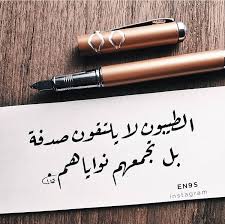 الطيبون لا يلتقون صدفة
بل تجمعهم نواياهم
EN9S
Instagram